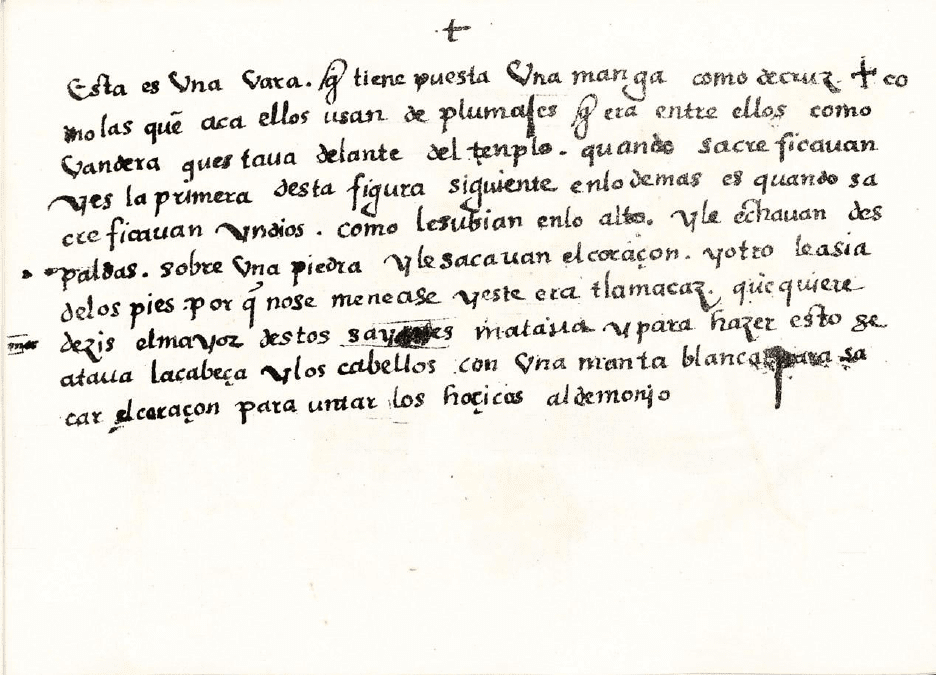 +
Esta es Vna vara. q̃ tiene puesta Vna manga como de cruz + co
mo las quẽ aca ellos usan de plumajes q̃ era entre ellos como
Vandera questaua delante del templo. quando sacreficauan
yes la primera desta figura siguiente enlo demas es quando sa
creficauan yndios. como lesubian enlo alto. yle echauan des
paldas. sobre Vna piedra yle sacauan elcoraçon. yotro leasia
delos pies. por q̃ nose menease yeste era tlamacaz. que quiere
dezir elmayor destos mataua ypara hazer esto se
ataua lacabeça ylos cabellos con Vna manta blanca para sa
car elcoraçon para untar los hoçicos aldemonio